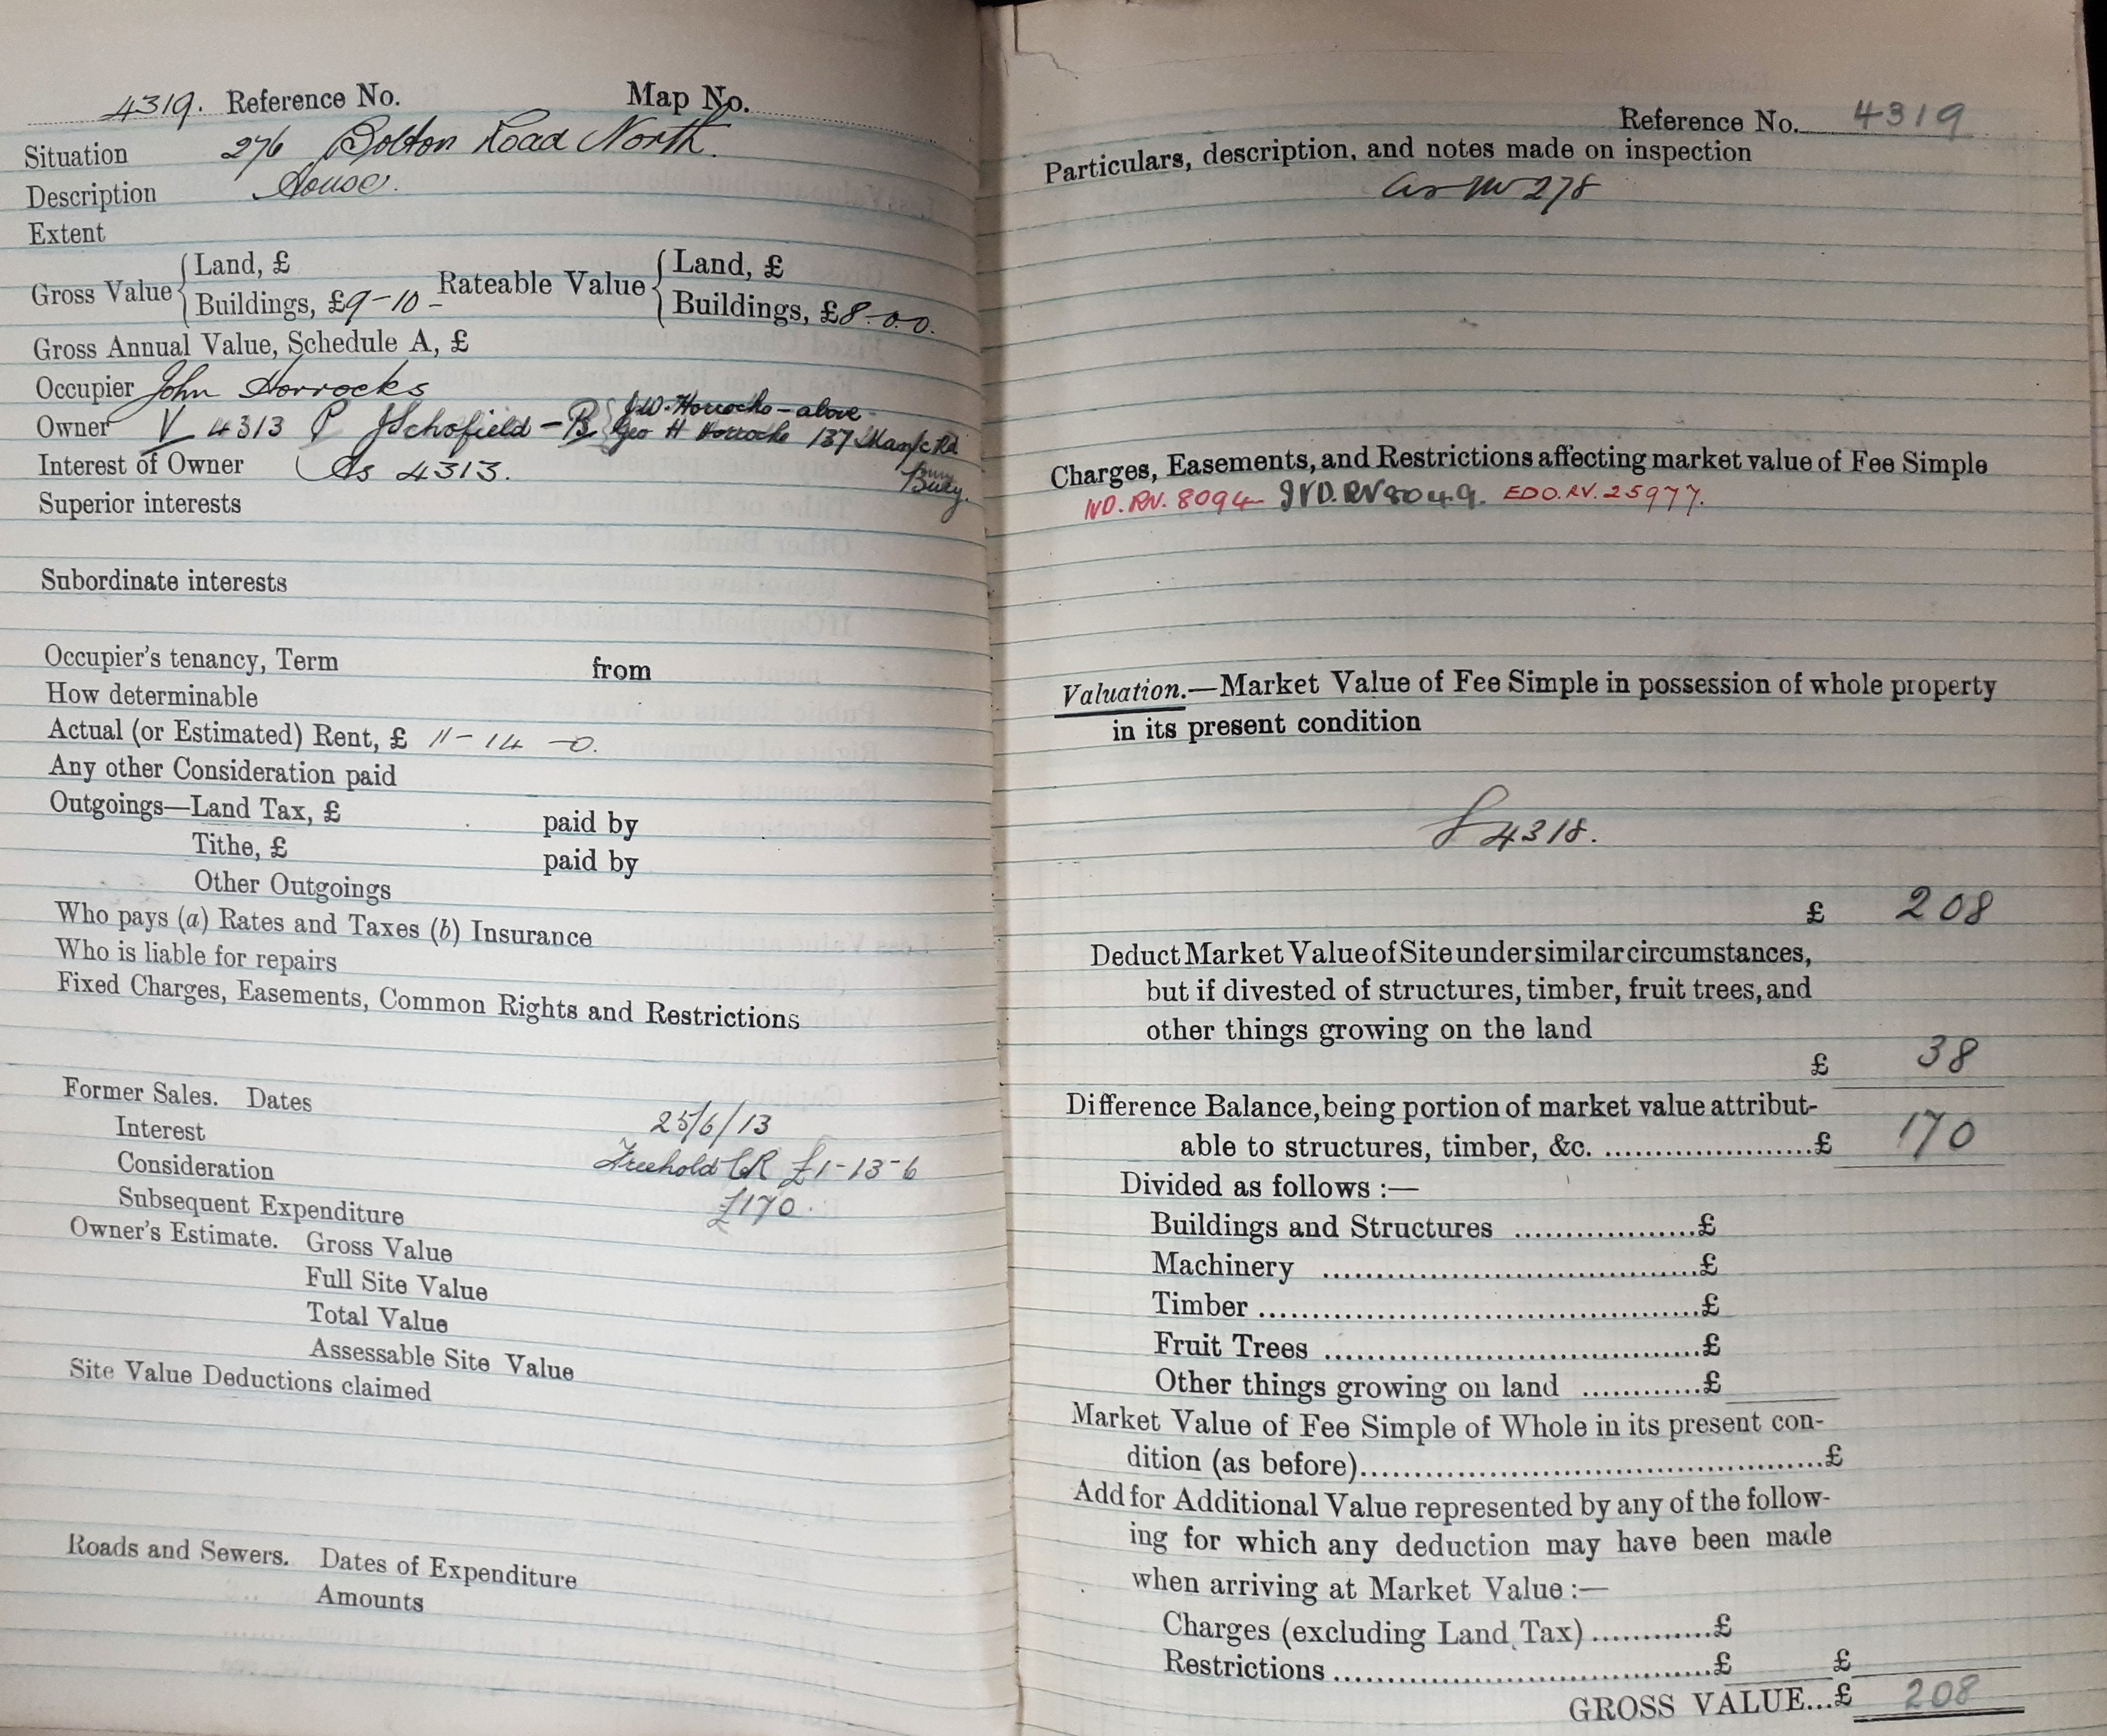 4319. Reference No. Map No.
Situation 276 Bolton Road North.
Description House.
Extent
Gross Value { Land, £ Rateable Value { Land, £
Buildings, £9-10- Buildings, £8-0-0.
Gross Annual Value, Schedule A, £
Occupier John Horrocks
J.W. Horrocks - above
Owner V 4313 P J Schofield - B { Geo H Horrocks 137 Manfc Rd
Interest of Owner As 4313. Bury.
Superior interests
Subordinate interests
Occupier's tenancy, Term from
How determinable
Actual (or Estimated) Rent, £ 11-14-0.
Any other Consideration paid
Outgoings—Land Tax, £ paid by
Tithe, £ paid by
Other Outgoings
Who pays (a) Rates and Taxes (b) Insurance
Who is liable for repairs
Fixed Charges, Easements, Common Rights and Restrictions
Former Sales. Dates 25/6/13
Interest Freehold CR £1-13-6
Consideration £170.
Subsequent Expenditure
Owner's Estimate. Gross Value
Full Site Value
Total Value
Assessable Site Value
Site Value Deductions claimed
Roads and Sewers. Dates of Expenditure
Amounts
Reference No. 4319
Particulars, description, and notes made on inspection
as 278
Charges, Easements, and Restrictions affecting market value of Fee Simple
IVD.RV.8094 IVD.RV8049. EDO.RV.25977.
Valuation.—Market Value of Fee Simple in possession of whole property
in its present condition
4318.
£ 208
Deduct Market Value of Site under similar circumstances,
but if divested of structures, timber, fruit trees, and
other things growing on the land
£ 38
Difference Balance, being portion of market value attribut-
able to structures, timber, &c. ........................£ 170
Divided as follows :—
Buildings and Structures ....................£
Machinery ..........................................£
Timber ..................................................£
Fruit Trees ..........................................£
Other things growing on land ............£
Market Value of Fee Simple of Whole in its present con-
dition (as before)......................................................£
Add for Additional Value represented by any of the follow-
ing for which any deduction may have been made
when arriving at Market Value :—
Charges (excluding Land Tax) .............£
Restrictions ..........................................£ £
GROSS VALUE...£ 208